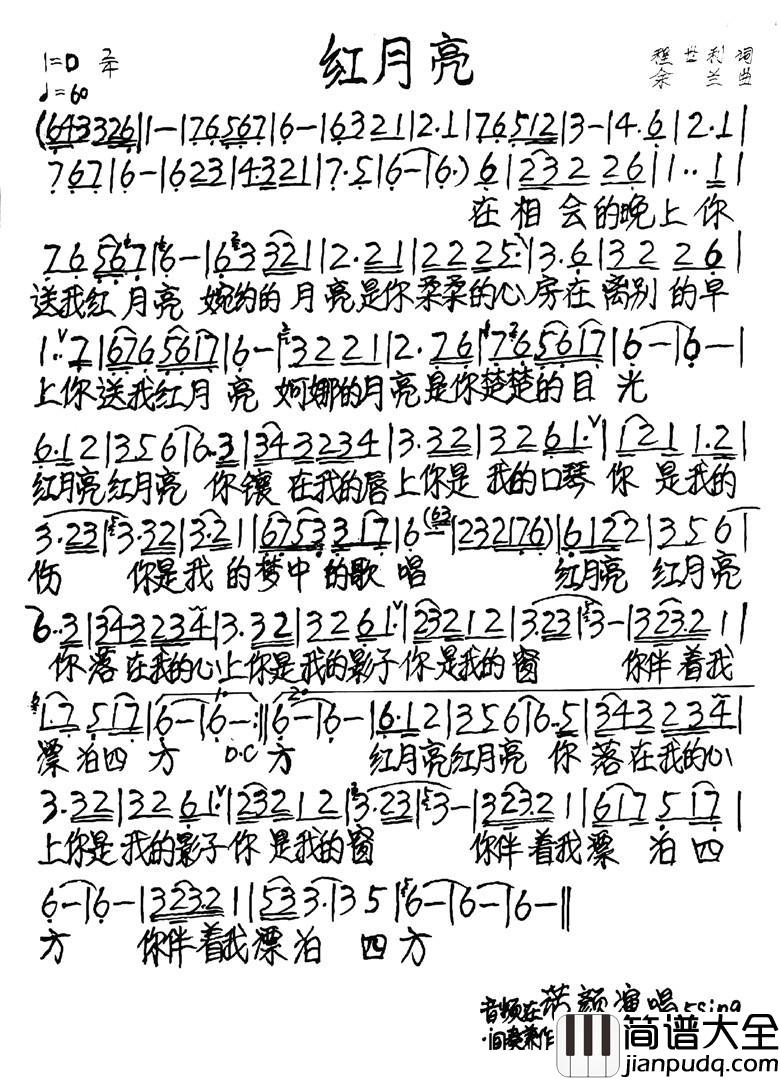 红月亮
1=D 2/4
♩=60
程世利 词
余兰 曲
(643326|1-|76567|6-|6321|2·1|76512|3-|4·6|2·1|
767|6-|623|4321|7·5|6-|6·)6|232 26|1··1|
在相会的晚上你
76567|6-|63321|2·21|2225·|3·6|322 6|
送我红月亮 婉约的月亮是你柔柔的心房在离别的早
1··7|676567|6-|3221|2·76|7656 17|6-|6-|
上你送我红月亮 婀娜的月亮是你楚楚的目光
6·12|356|6··3|343234|3·32|3261·|121 1·21|
红月亮红月亮 你镶在我的唇上你是我的口琴你是我的
3·23|3·32|3·21|6753317|6(63|232176)|6122|356|
伤 你是我的梦中的歌唱 红月亮 红月亮
6··3|343234|3·32|3261·|23212|3·23|3-|323·21|
你落在我的心上你是我的影子你是我的窗 你伴着我
1·7517|6-|6-:||6-|6-|6·12|356|6··5|343234|
漂泊四方 D.C 方 红月亮红月亮 你落在我的心
3·32|3261·|23212|3·23|3-|323·21|617517|
上你是我的影子你是我的窗 你伴着我漂泊四
6-|6-|323·21|533·|35|6-|6-|6-||
方 你伴着我漂泊四方
音频在 演唱 5sing
·间奏
简谱大全
jianpudq.com